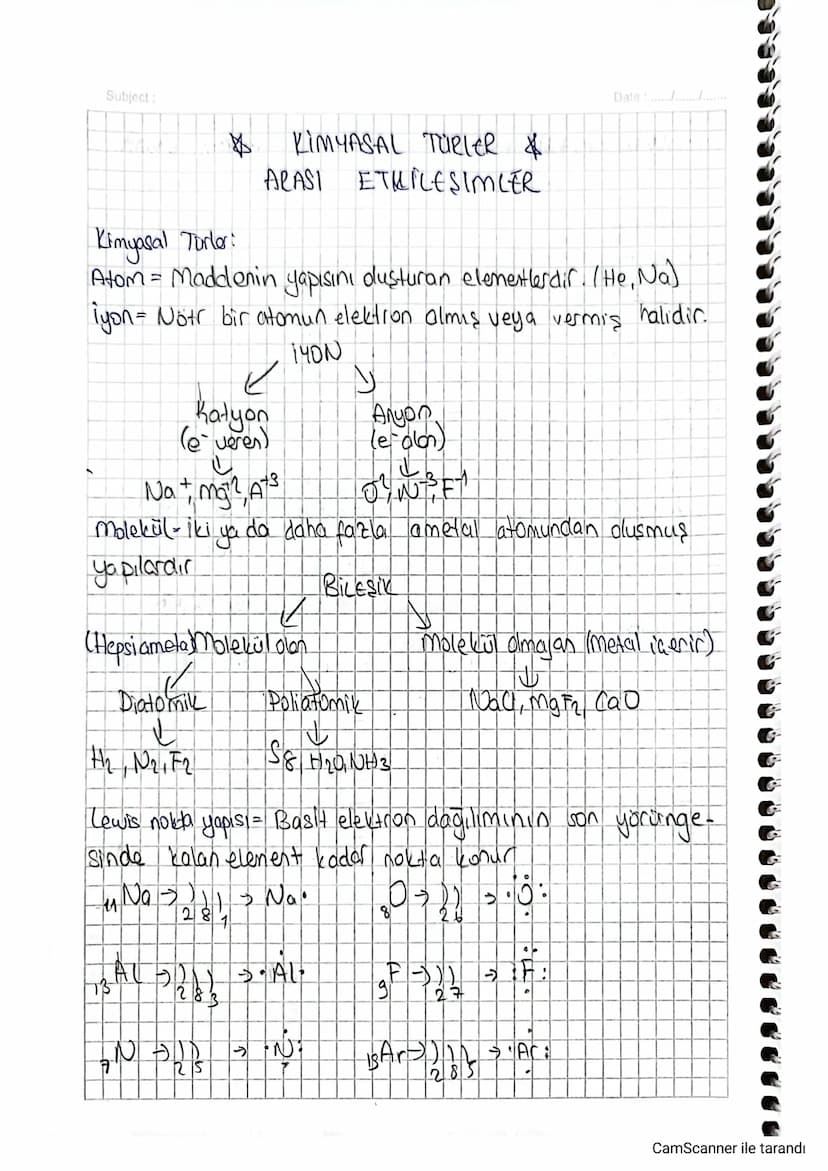 Subject:
Date:....../....../......
KİMYASAL TÜRLER
ARASI ETKİLEŞİMLER
Kimyasal Türler:
Atom = Maddenin yapısını oluşturan elementlerdir. (He, Na)
İyon = Nötr bir atomun elektron almış veya vermiş halidir.
İYON
Katyon Anyon
(e⁻ veren) (e⁻ alan)
Na⁺, Mg⁺², A⁺³ O⁻², N⁻³, F⁻¹
Molekül - İki ya da daha fazla ametal atomundan oluşmuş
yapılardır
BİLEŞİK
(Hepsi ametal) Molekül olan Molekül olmayan (Metal içerir)
Diatomik Poliatomik NaCl, MgF₂, CaO
H₂, N₂, F₂ S8, H₂O, NH3
Lewis nokta yapısı = Basit elektron dağılımının son yörünge-
sinde kalan element kadar nokta konur
₁₁Na → ) ) ) 2 8 1 → Na· ₈O → ) ) 2 6 → ·Ö:
₁₃Al → ) ) ) 2 8 3 → ·Al· ₉F → ) ) 2 7 → :F:
₇N → ) ) 2 5 → ·N: Ar → ) ) ) 2 8 5 → ·Ar:
CamScanner ile tarandı